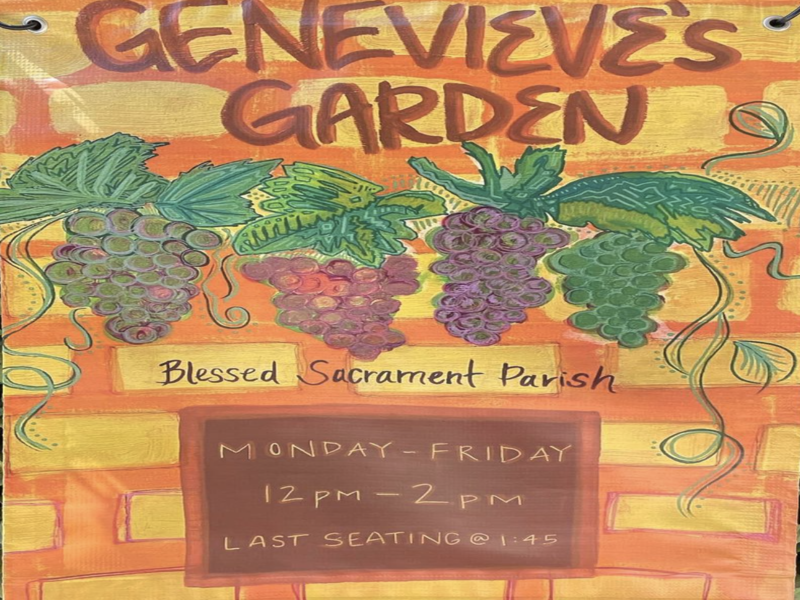 GENEVIEVE'S
GARDEN
Blessed Sacrament Parish
MONDAY-FRIDAY
12pm-2pm
LAST SEATING@1:45